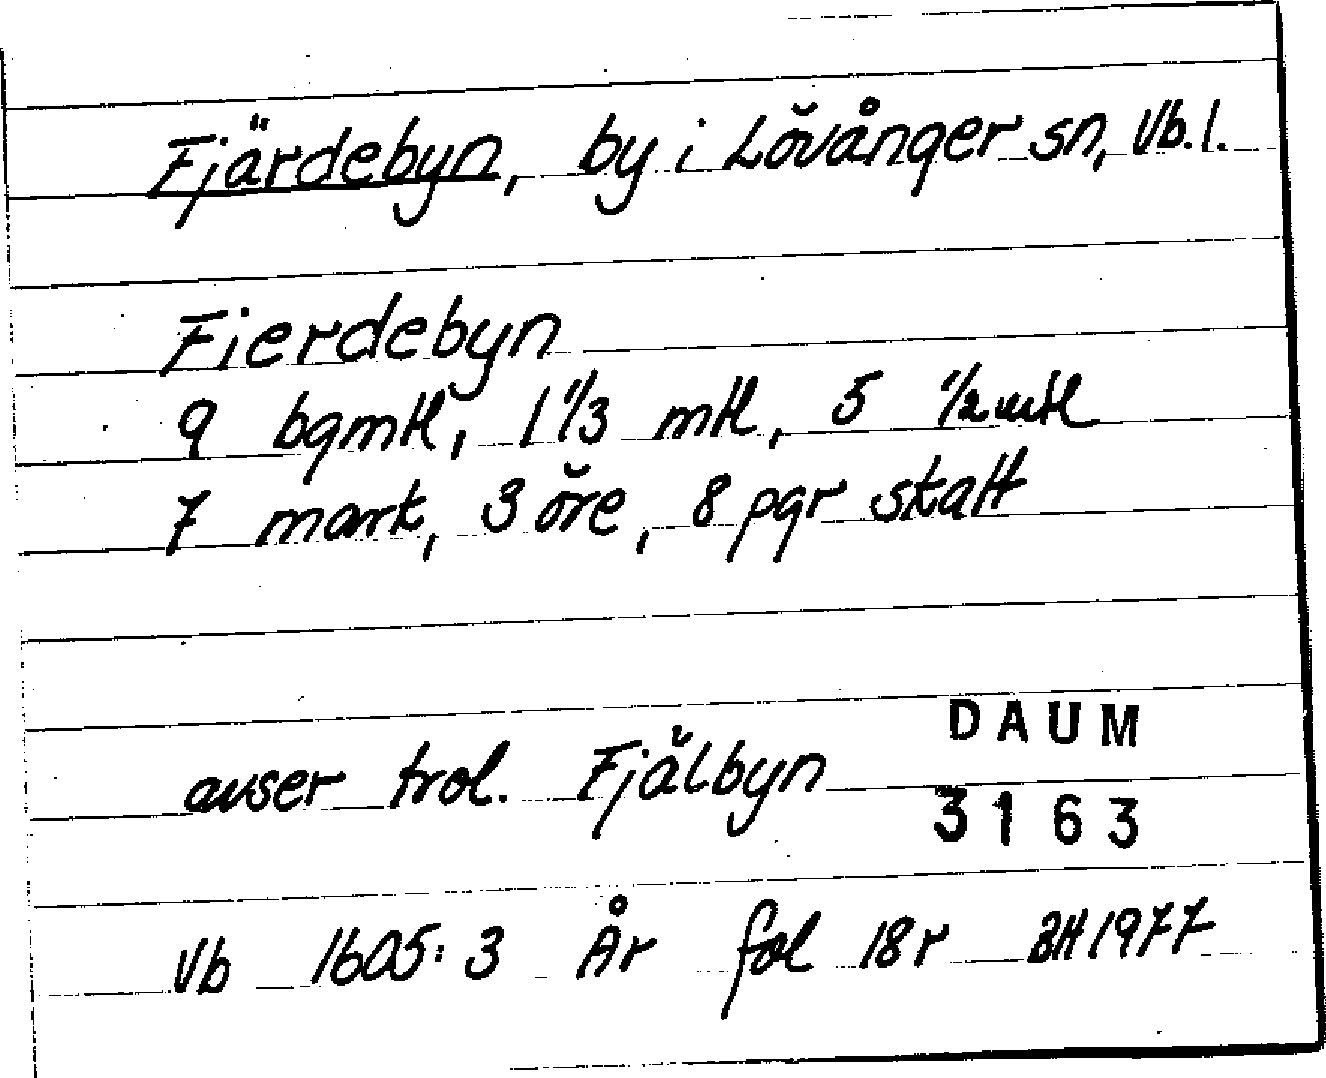 Fjärdebyn, by i Lövånger sn, Vb. l.
Fierdebyn
9 bgmtl, 1 1/3 mtl, 5 1/2 mtl
7 mark, 3 öre, 8 pgr skatt
avser trol. Fjälbyn
DAUM
3163
Vb 1605:3 År fol 18r BH 1977